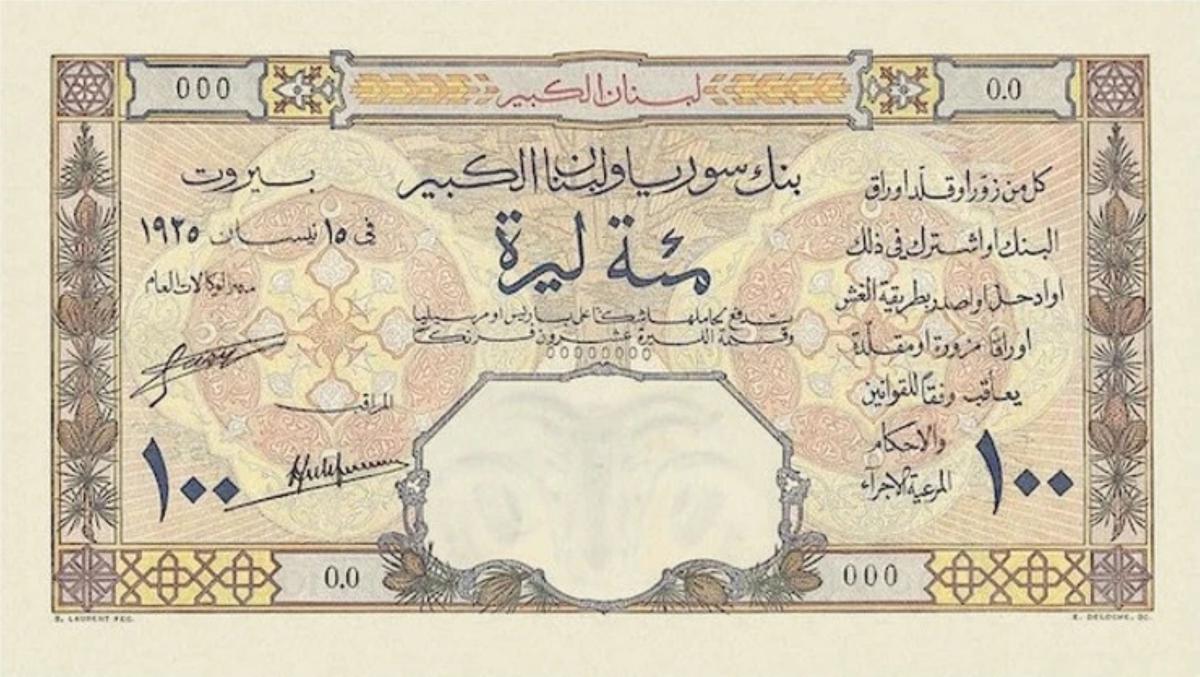 000
لبنان الكبير
0.0
بنك سوريا ولبنان الكبير
مئة ليرة
تدفع لحاملها شكًّا على باريس او مرسيليا
وقيمة الليرة عشرون فرنكًا
00000000
بيروت
في ١٥ نيسان ١٩٢٥
مدير الوكالات العام
المراقب
١٠٠
كل من زوّر او قلّد اوراق
البنك او اشترك في ذلك
او ادخل او اصدر بطريقة الغش
اوراقًا مزورة او مقلّدة
يعاقب وفقًا للقوانين
والاحكام
المرعية الاجرآء
١٠٠
0.0
000
S. LAURENT FEC.
E. DELOCHE. SC.